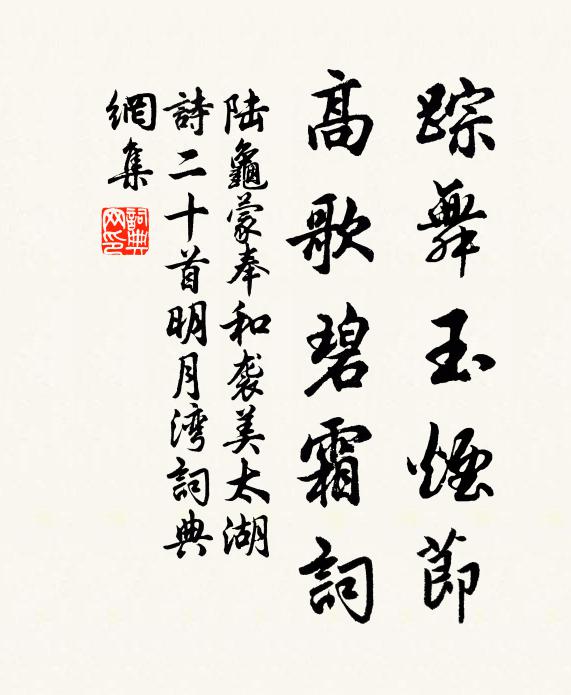 踪舞玉煙節
高歌碧霜詞
陆龜蒙奉和袭美太湖
詩二十首明月湾詞典
網集
詞典网印